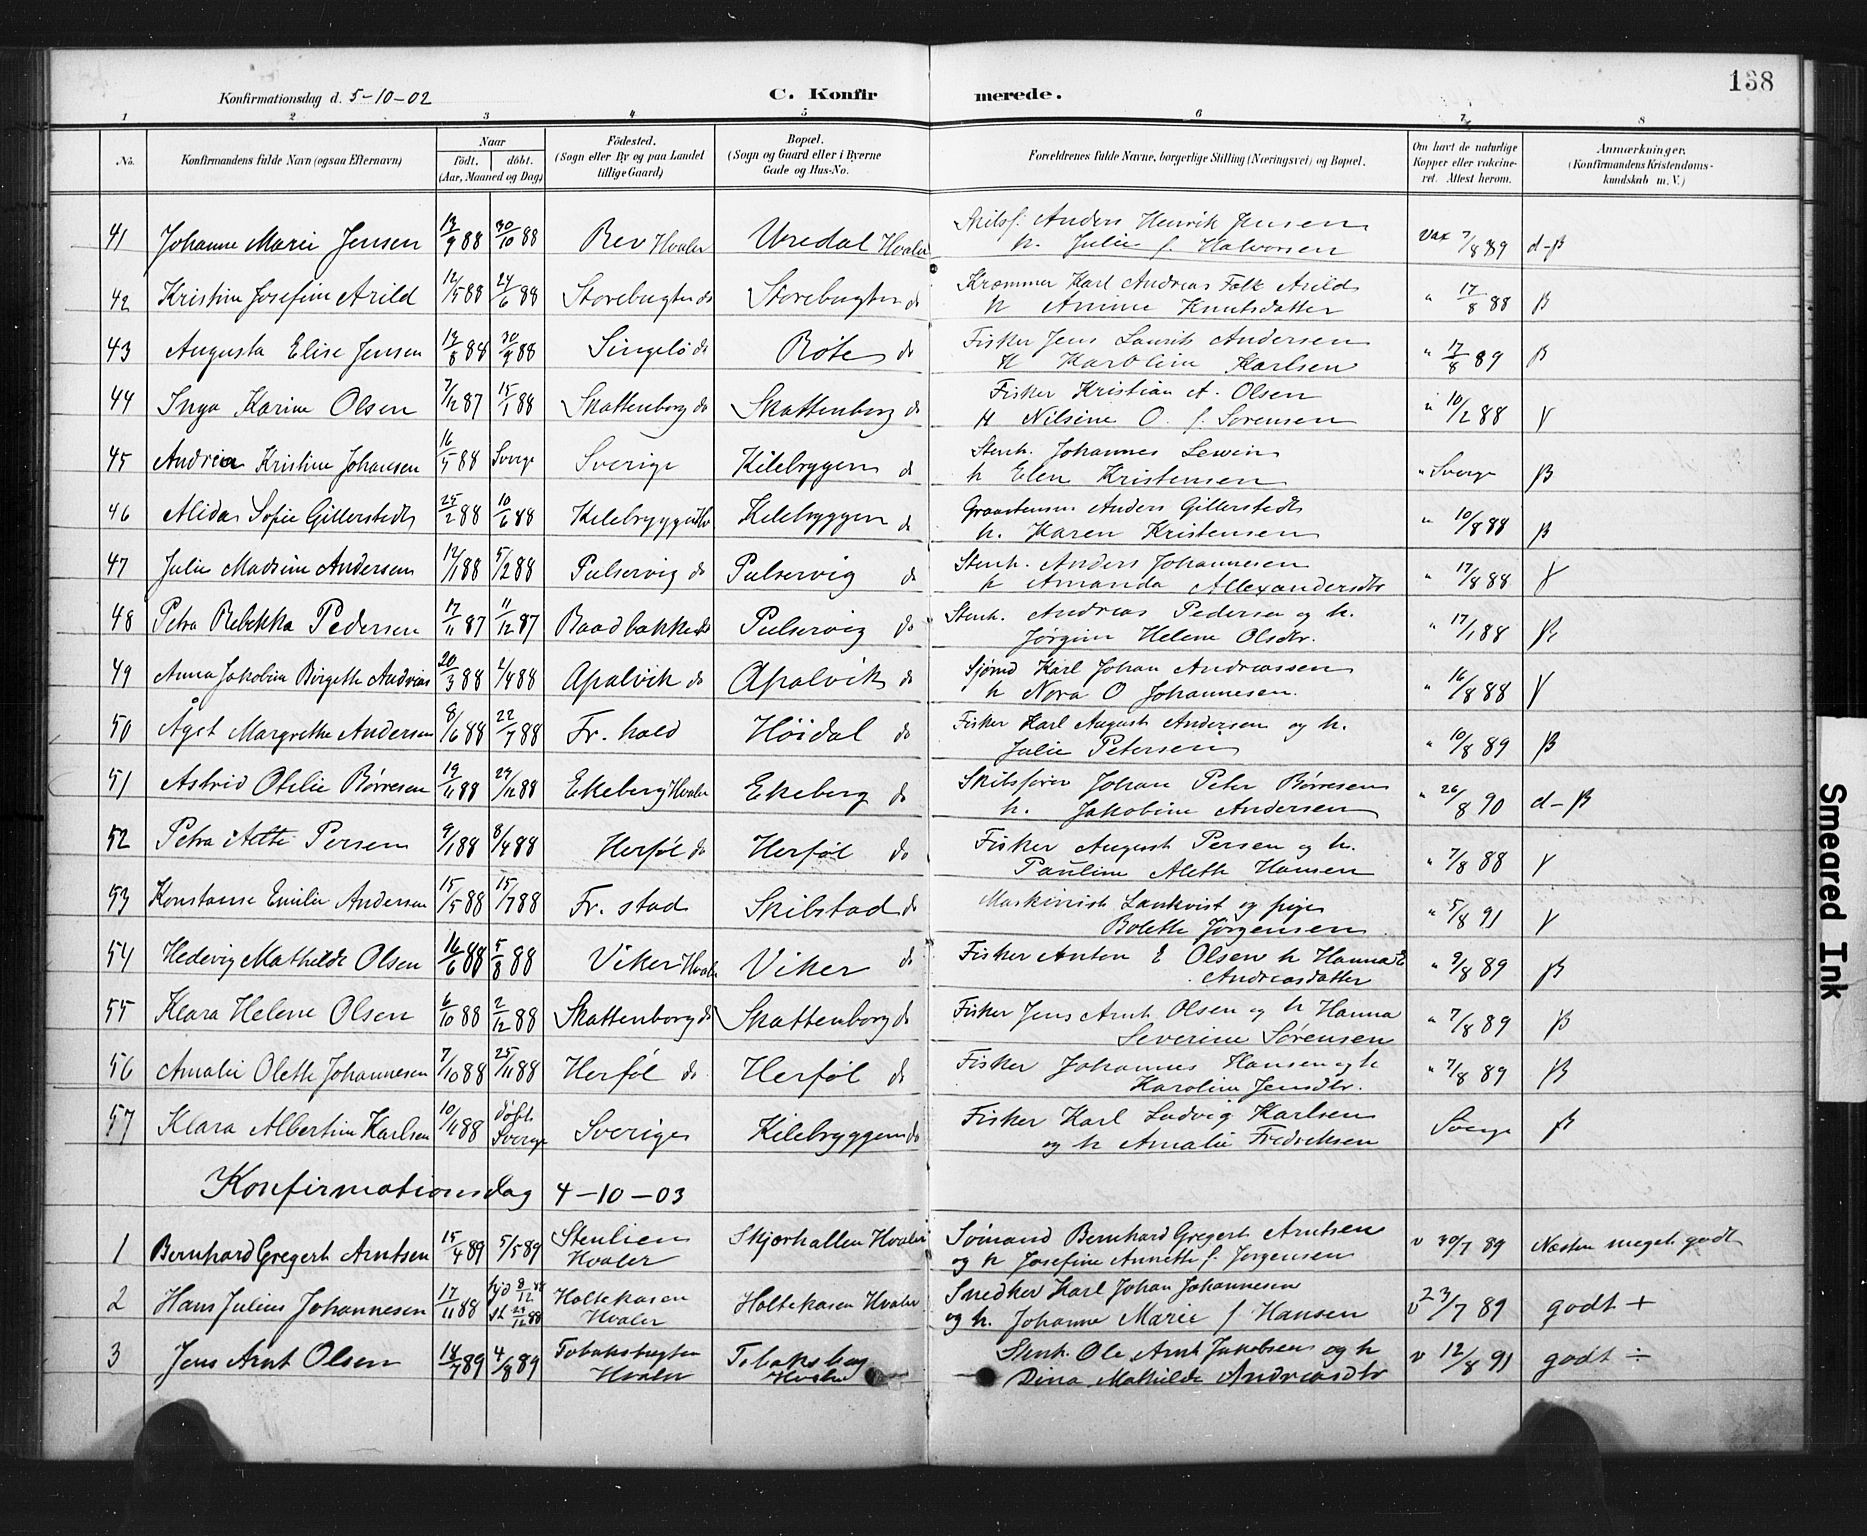 138
Konfirmationsdag d. 5-10-02
C. Konfirmerede.
1 2 3 4 5 6 7 8
No. Konfirmandens fulde Navn (ogsaa Efternavn) Naar födt. döbt. (Aar, Maaned og Dag) Födested. (Sogn eller By og paa Landet tillige Gaard) Bopæl. (Sogn og Gaard eller i Byerne Gade og Hus-No. Forældrenes fulde Navne, borgerlige Stilling (Næringsvei) og Bopæl. Om havt de naturlige Kopper eller vakcineret. Attest herom. Anmerkninger. (Konfirmandens Kristendomskundskab m. V.)
41 Johanne Marie Jensen 13/9 88 30/10 88 Rev Hvaler Uredal Hvaler Skibsf. Anders Henrik Jensen h. Julie f. Halvorsen Vax 7/8 89 d-ß
42 Kristine Josefine Arild 12/5 88 24/6 88 Storebugten do Storebugten do Kræmmer Karl Andreas Falk Arild h Amine Knutsdatter " 17/8 88 ß
43 Augusta Elise Jensen 13/8 88 30/9 88 Singelö do Röte do Fisker Jens Laurits Andersen H Karoline Karlsen " 17/8 89 ß
44 Inga Karine Olsen 7/12 87 15/1 88 Skattenborg do Skattenborg do Fisker Kristian A. Olsen H Nilsine O. f. Sorensen " 10/2 88 V
45 Andrea Kristine Johansen 16/5 88 Sverge Sverige Kilebryggen do Stenh. Johannes Lewin h Elen Kristensen " Sverge ß
46 Alida Sofie Gillerstedt 25/2 88 10/6 88 Kilebryggen Hv Kilebryggen do Anders Gillerstedt h. Karen Kristensen " 10/8 88 ß
47 Julie Madsine Andersen 12/1 88 5/2 88 Pulservig do Pulservig do Stenh. Anders Johannesen h Amanda Allexandersdtr " 17/8 88 V
48 Petra Rebekka Pedersen 17/11 87 11/12 87 Baadbakken do Pulservig do Stenh. Andreas Pedersen og h. Jørgine Helene Olsdtr. " 17/1 88 ß
49 Anna Jakobine Birgette Andreas 20/3 88 /4 88 Apalvik do Apalvik do Sjømd Karl Johan Andreassen h Nora O Johannesen. " 16/8 88 V
50 Ågot Margrethe Andersen 8/6 88 22/7 88 Fr. hald Höidal do Fisker Karl August Andersen og h. Julie Petersen " 10/8 89 ß
51 Astrid Otelie Børresen 19/11 88 29/12 88 Ekeberg Hvaler Ekeberg do Skibsfører Johan Peter Børresen h. Jakobine Andersen " 26/8 90 d-ß
52 Petra Alette Persen 9/1 88 8/4 88 Herföl do Herföl do Fisker August Persen og h. Pauline Aleth Hansen " 7/8 88 V
53 Konstanse Emilie Andersen 15/5 88 15/7 88 Fr. stad Skibstad do Maskinist Lankvist og pige Bolette Jørgensen " 5/8 91 V
54 Hedevig Mathilde Olsen 16/6 88 5/8 88 Viker Hvaler Viker do Fisker Anton E Olsen h Hanna E Andreasdatter " 9/8 89 ß
55 Klara Helene Olsen 6/10 88 2/12 88 Skattenborg do Skattenborg do Fisker Jens Arnt Olsen og h Hanna Severine Sørensen " 7/8 89 ß
56 Amalie Olette Johannesen 7/10 88 25/11 88 Herföl do Herföl do Fisker Johannes Hansen og h Karoline Jensdtr. " 7/8 89 ß
57 Klara Albertine Karlsen 10/11 88 döbt Sverge Sverige Kilebryggen do Fisker Karl Ludvig Karlsen og h Amalie Fredriksen Sverge ß
Konfirmationsdag 4-10-03
1 Bernhard Gregert Arntsen 15/4 89 5/5 89 Stenlien Hvaler Skjærhallen Hvaler Sømand Bernhard Gregert Arntsen og h Josefine Annette f. Jørgensen v 30/7 89 Næsten meget godt
2 Hans Julius Johannesen 17/11 88 hjd 8/12 88 st 29/12 88 Holtekasen Hvaler Holtekasen Hvaler Snedker Karl Johan Johannesen og h. Johanne Marie f Hansen v 23/7 89 godt +
3 Jens Arnt Olsen 14/7 89 4/8 89 Tobaksbugten Hvaler Tobaksbug Hvaler Stenh. Ole Arnt Jakobsen og h Dina Mathilde Andreasdtr v 12/8 91 godt ÷
Smeared Ink